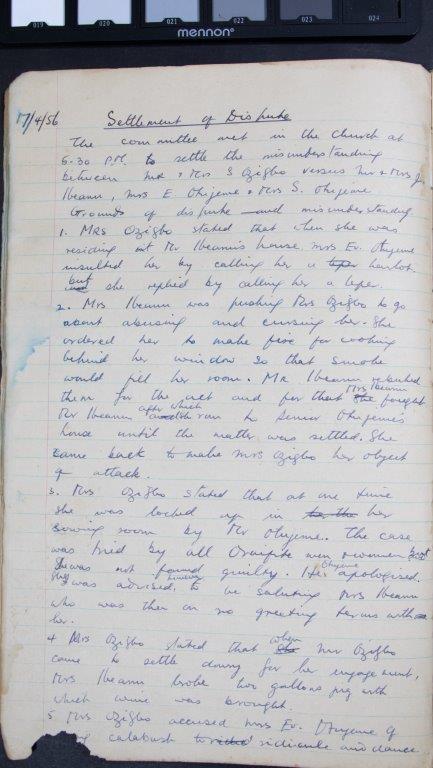 019 020 021 022 023 024
mennon®
17/4/56 Settlement of Dispute
The committee met in the Church at
5.30 P.M. to settle the misunderstanding
between Mr & Mrs S Ozigbo versus Mr & Mrs J.
Ibeanu, Mrs E Ohijeme & Mrs S. Ohijeme
Grounds of dispute and misunderstanding
1. Mrs Ozigbo stated that when she was
residing at Mr Ibeanu's house Mrs Ev. Ohijeme
insulted her by calling her a leper harlot.
but she replied by calling her a leper.
2. Mrs Ibeanu was pushing Mrs Ozigbo to go
about abusing and cursing her. She
ordered her to make fire for cooking
behind her window so that smoke
would fill her room. Mr. Ibeanu rebuked
them for the act and for that she Mrs Ibeanu fought
Mr Ibeanu after which ran to Senior Ohijeme's
house until the matter was settled. She
came back to make Mrs Ozigbo her object
of attack.
3. Mrs Ozigbo stated that at one time
she was locked up in her
sowing room by Mr Ohijeme. The case
was tried by all men & women
She was not found guilty. Ohijeme apologised.
She was however advised to be saluting Mrs Ibeanu
who was then on no greeting terms with
her.
4 Mrs Ozigbo stated that when Mr Ozigbo
came to settle dowry for her engagement,
Mrs Ibeanu broke two gallons jug with
which wine was brought.
5 Mrs Ozigbo accused Mrs Ev. Ohijeme of
calabash to ridicule and dance